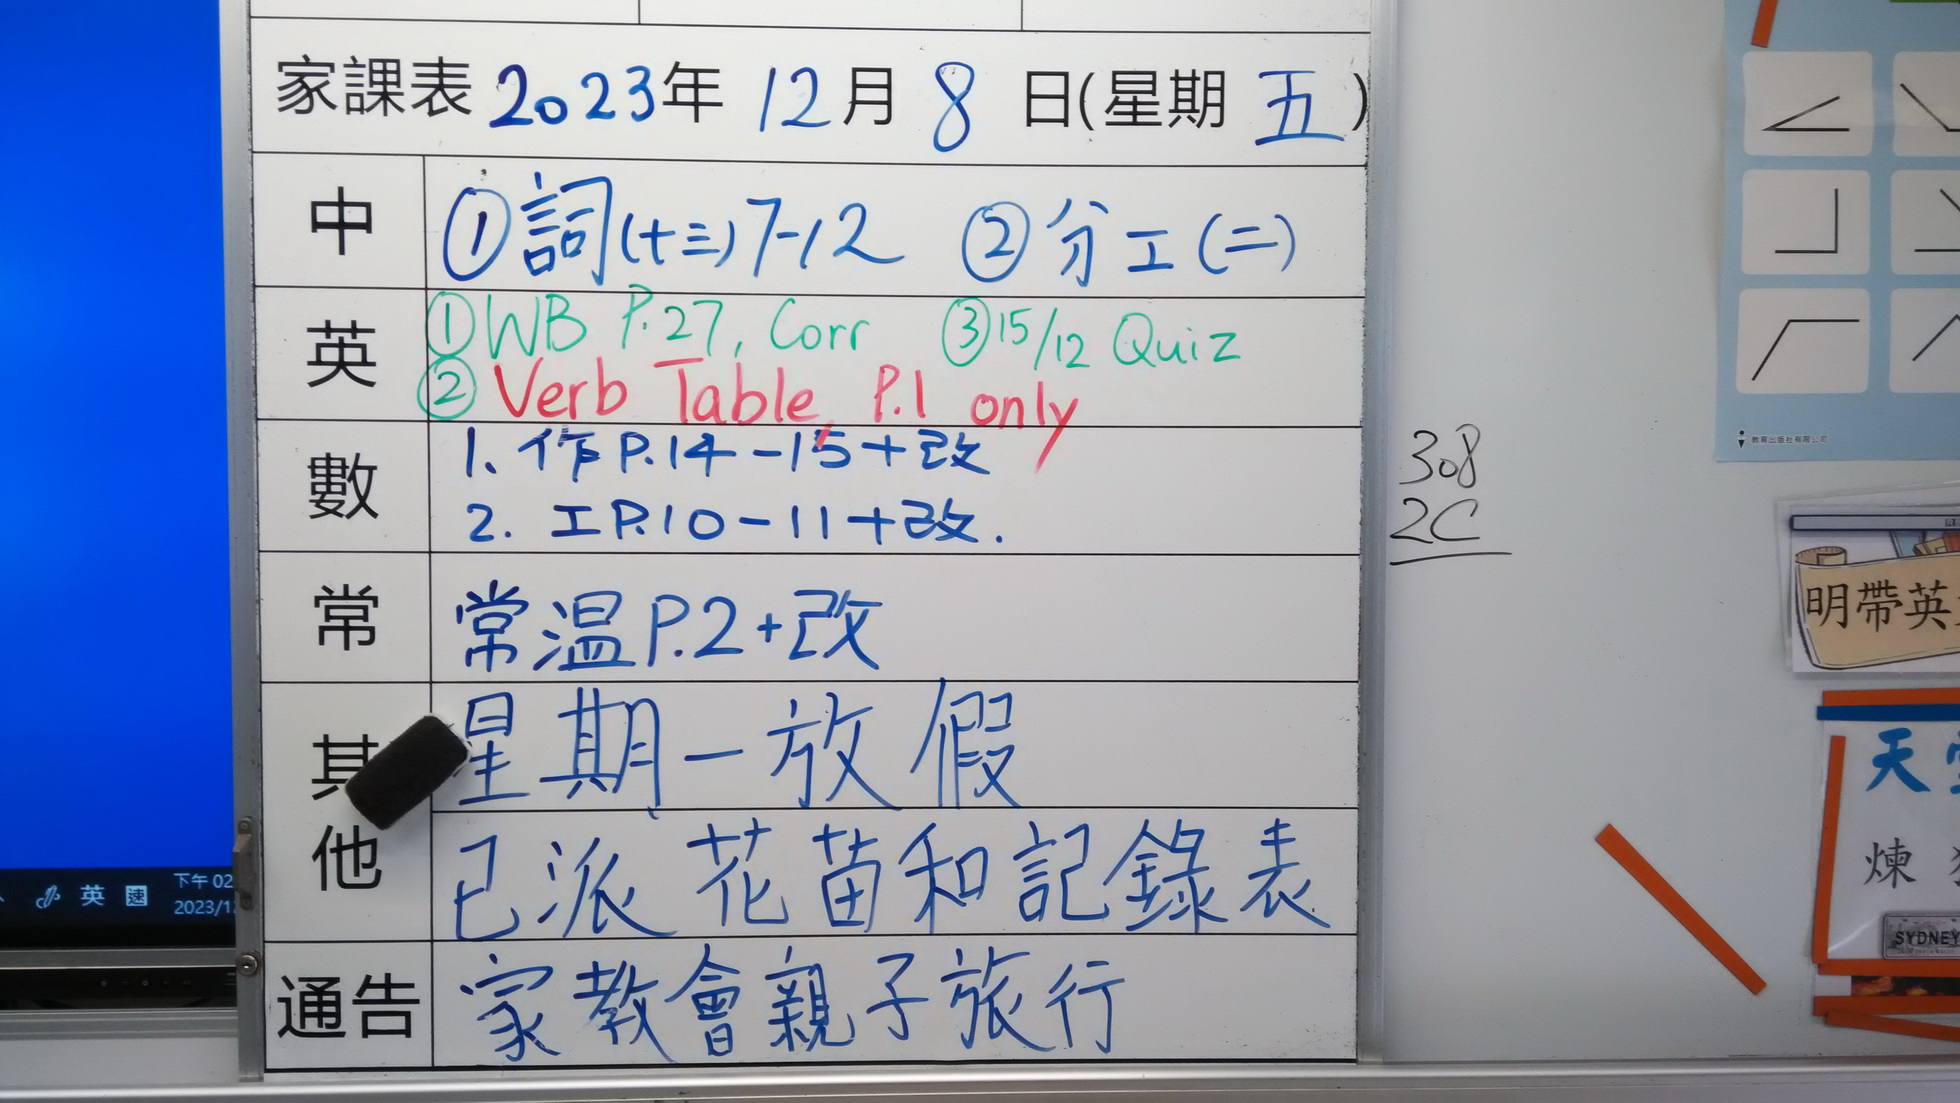 家課表 2023年 12月 8 日(星期 五)
中 ①詞(十三)7-12 ②分工(二)
英 ①WB P.27, Corr ③15/12 Quiz
②Verb Table, P.1 only
數 1. 作P.14-15+改
2. 工P.10-11+改.
常 常温P.2+改
其他 星期一放假
已派花苗和記錄表
通告 家教會親子旅行
308
2C
教育出版社有限公司
明帶英
天
煉
SYDNEY
英 速 下午 02
2023/12